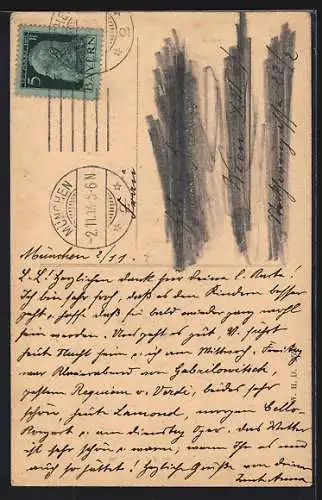 5
BAYERN
MÜNCHEN
2
MÜNCHEN
-2.11. 5-6 N
Frau
Wien
München 2/11.
L. L.! Herzlichen Dank für deine l. Karte!
Ich bin sehr froh, daß es den Kindern besser
geht u. hoffe daß sie bald wieder ganz wohl
sein werden. Uns geht es gut, V. fährt
heut Nacht heim u. ich am Mittwoch. Freitag
war Klavierabend von Gabrilowitsch,
gestern Requiem v. Verdi, beides sehr
schön, heute Lamond, morgen Cello-
am Dienstag Oper. Das Wetter
ist sehr schön u. warm; wenn Ihr es nur
auch so hättet! Herzliche Grüße von deiner
Tante Anna